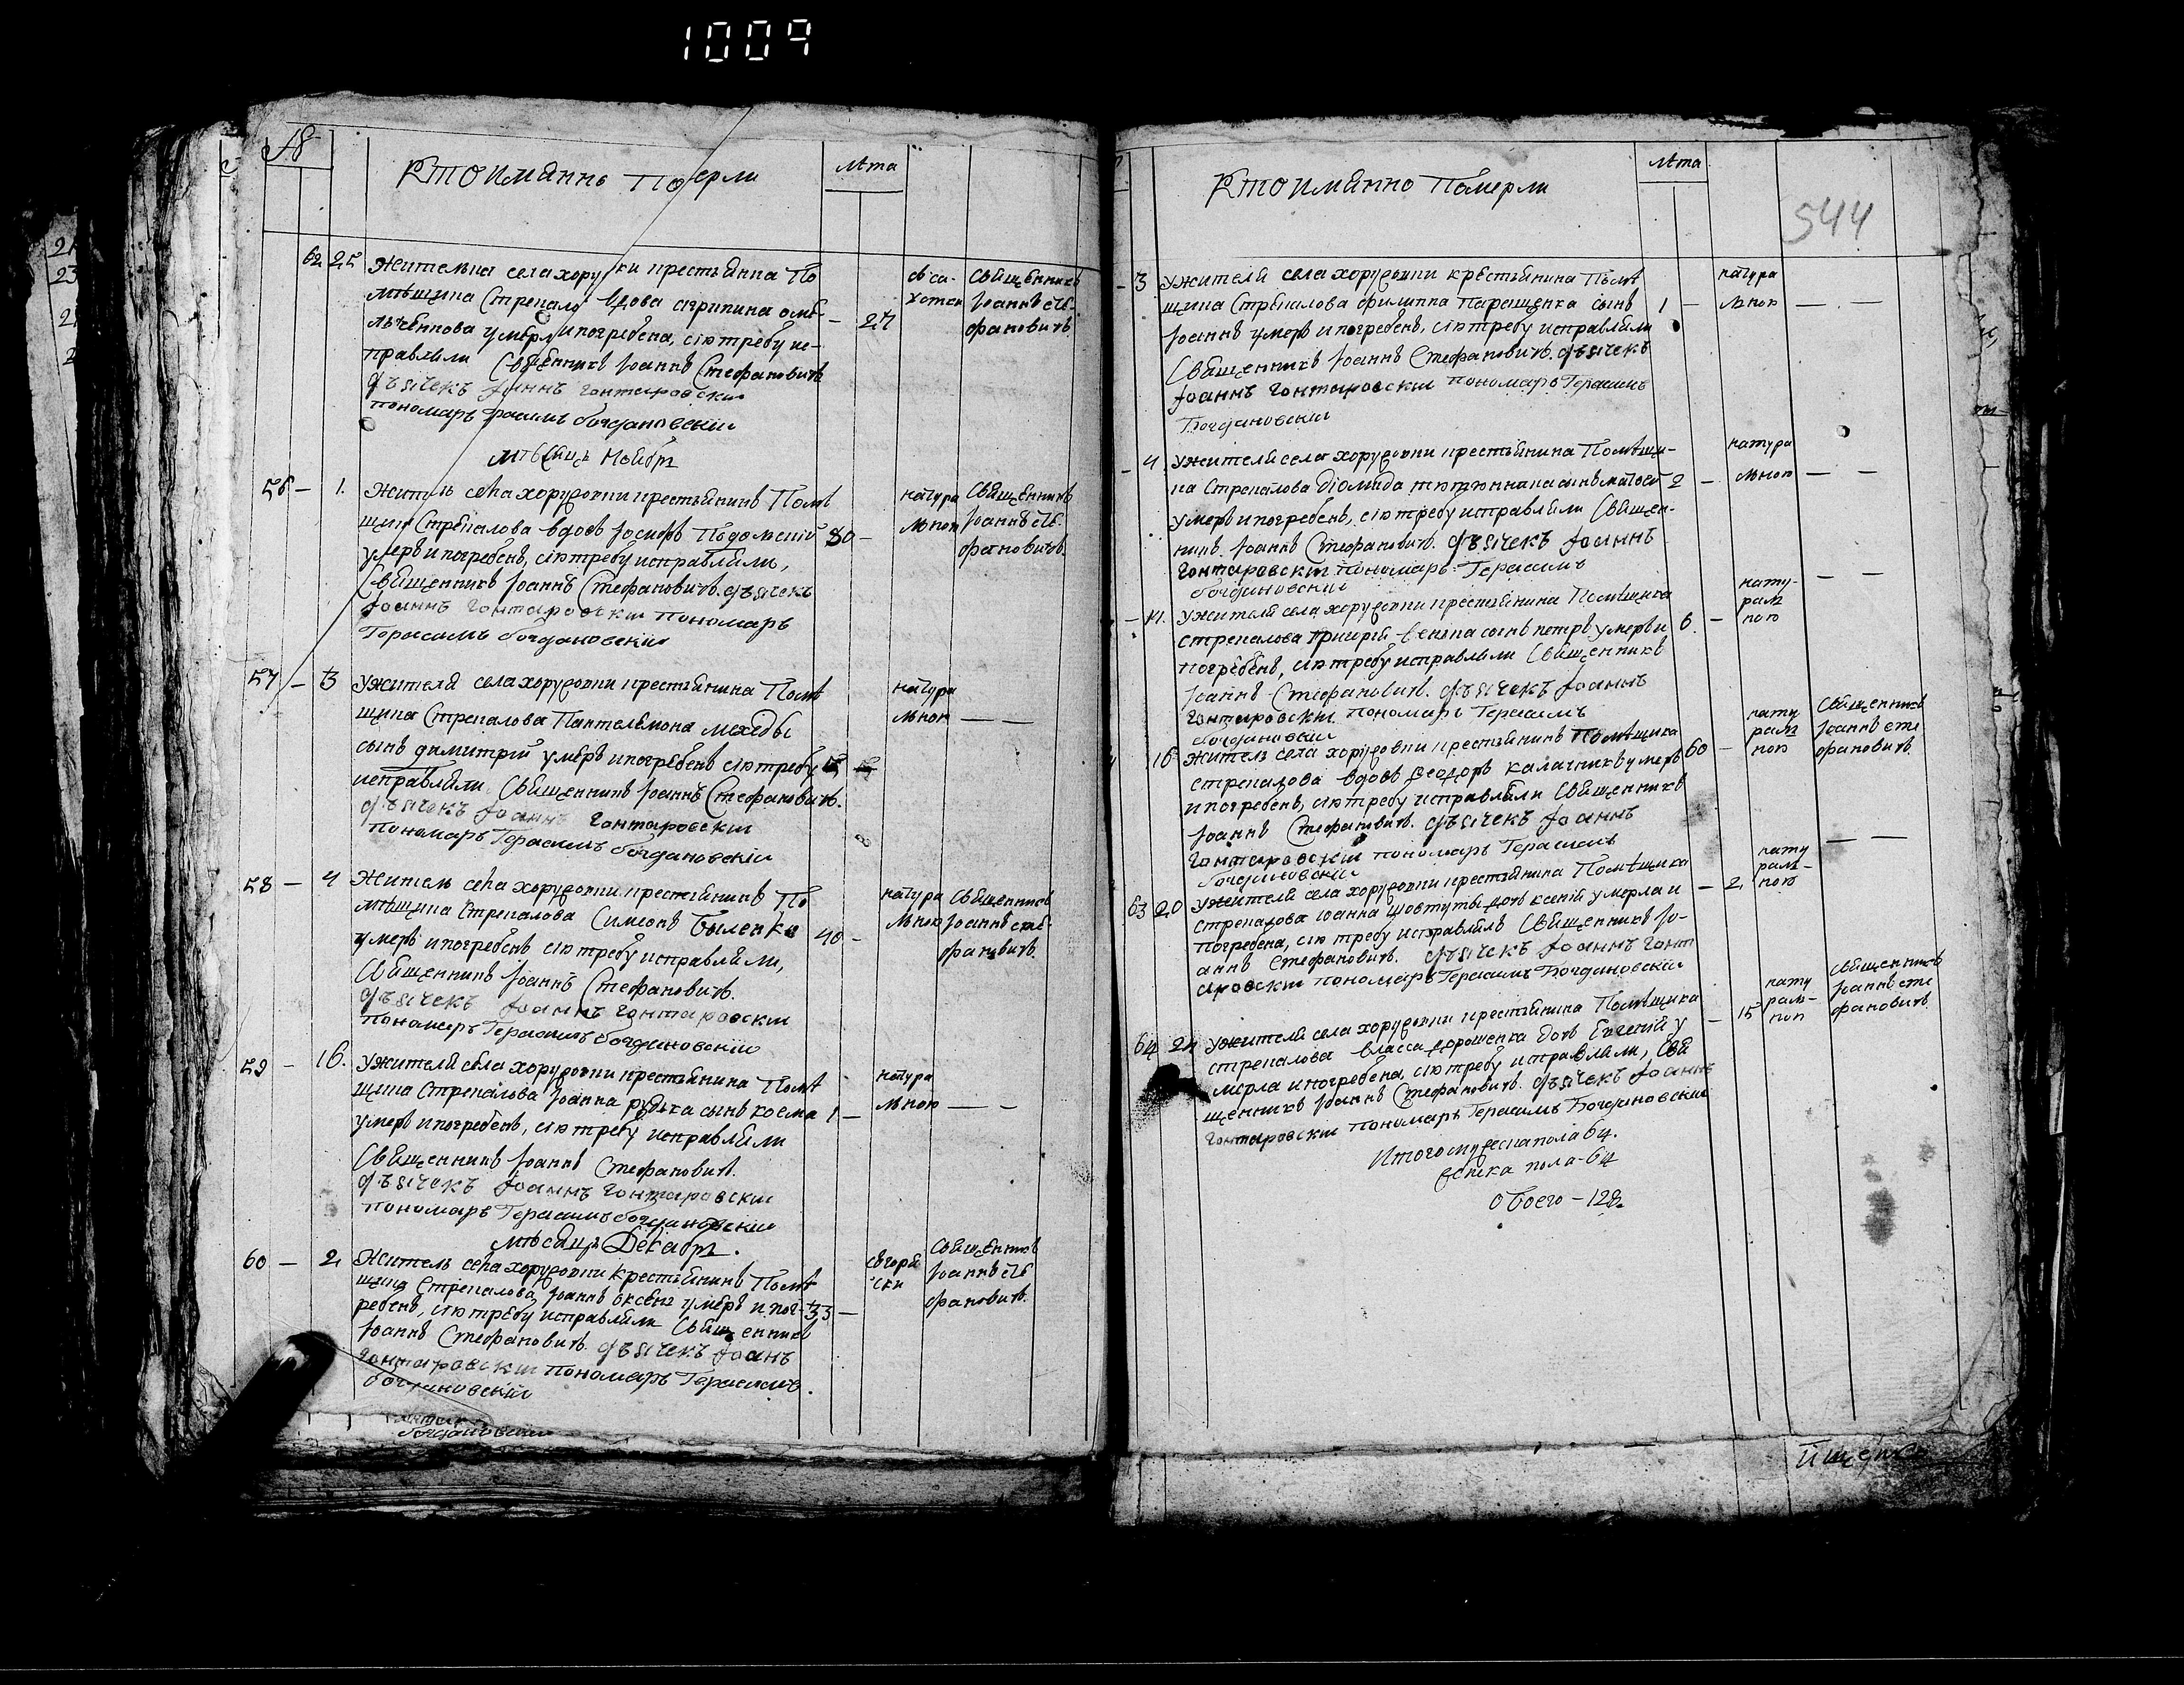 1009
18
Кто имянно померли
Лѣта
62 25 Жителька села хоружовки крестьянина По
мѣщика Стрекалова вдова агрипина омѣ-
льченкова умерла и погребена, сію требу ис- 27
правляли Священникъ Іоаннъ Стефановичъ
дьячекъ Іоаннъ Гонтаровскій
пономарь Герасимъ Богдановскій
съ су-
хотки
Священникъ
Іоаннъ Сте-
фановичъ
мѣсяцъ Ноябрь
56 1. Житель села хоружовки крестьянинъ Помѣ
щика Стрекалова вдовъ Іосифъ 80
умеръ и погребенъ, сію требу исправляли,
Священникъ Іоаннъ Стефановичъ дьячекъ
Іоаннъ Гонтаровскій пономарь
Герасимъ Богдановскій
натура
льною
Священникъ
Іоаннъ Сте-
фановичъ
57 3 У жителя села хоружовки крестьянина Помѣ
щика Стрекалова Пантелемона
сынъ димитрій умеръ и погребенъ сію требу
исправляли Священникъ Іоаннъ Стефановичъ
дьячекъ Іоаннъ Гонтаровскій
пономарь Герасимъ Богдановскій
натура
льною
58 4 Житель села хоружовки крестьянинъ По
мѣщика Стрекалова Симеонъ Быленко
умеръ и погребенъ сію требу исправляли, 40
Священникъ Іоаннъ Стефановичъ
дьячекъ Іоаннъ Гонтаровскій
пономарь Герасимъ Богдановскій
натура
льною
Священникъ
Іоаннъ Сте-
фановичъ
59 16. У жителя села хоружовки крестьянина Помѣ
щика Стрекалова Іоанна рудька сынъ косма 1
умеръ и погребенъ, сію требу исправляли
Священникъ Іоаннъ Стефановичъ
дьячекъ Іоаннъ Гонтаровскій
пономарь Герасимъ Богдановскій
натура
льною
мѣсяцъ Декабрь.
60 2 Житель села хоружовки крестьянинъ Помѣ
щика Стрекалова Іоаннъ умеръ и пог- 33
ребенъ, сію требу исправляли Священникъ
Іоаннъ Стефановичъ дьячекъ Іоанъ
Гонтаровскій пономарь Герасимъ
Богдановскій
Священникъ
Іоаннъ Сте
фановичъ
Богдановскій
Кто имянно Померли
Лѣта
544
3 У жителя села хоружовки крестьянина Помѣ
щика Стрекалова филиппа Паращенка сынъ 1
Іоаннъ умеръ и погребенъ, сію требу исправляли
Священникъ Іоаннъ Стефановичъ дьячекъ
Іоаннъ Гонтаровскій пономарь Герасимъ
Богдановскій
натура
льною
4 У жителя села хоружовки крестьянина Помѣщи-
ка Стрекалова діомида тютюнника сынъ матвей 2
умеръ и погребенъ, сію требу исправляли Священ-
никъ Іоаннъ Стефановичъ дьячекъ Іоаннъ
Гонтаровскій пономарь Герасимъ
Богдановскій
натура
льною
У жителя села хоружовки крестьянина Помѣщика
стрекалова григорія сынъ петръ умеръ и 6.
погребенъ, сію требу исправляли Священникъ
Іоаннъ Стефановичъ дьячекъ Іоаннъ
Гонтаровскій пономарь Герасимъ
Богдановскій
нату-
рал
ною
16 Житель села хоружовки крестьянинъ Помѣщика
стрекалова вдовъ Феодоръ калачникъ умеръ 60
и погребенъ, сію требу исправляли Священникъ
Іоаннъ Стефановичъ дьячекъ Іоаннъ
Гонтаровскій пономарь Герасимъ
Богдановскій
нату
рал
ною
Священникъ
Іоаннъ Сте
фановичъ
63 20 У жителя села хоружовки крестьянина Помѣщика
стрекалова Іоанна шовтуты дочь ксенія умерла и 2
погребена, сію требу исправлялъ Священникъ Іо-
аннъ Стефановичъ дьячекъ Іоаннъ Гонт
аровскій пономарь Герасимъ Богдановскій
нату
рал-
ною
64 24 У жителя села хоружовки крестьянина Помѣщика
стрекалова власса дорошенка дочь Евгенія у 15
мерла и погребена, сію требу исправляли, Свя
щенникъ Іоаннъ Стефановичъ дьячекъ Іоаннъ
Гонтаровскій пономарь Герасимъ Богдановскій
нату
рал-
ною
Священникъ
Іоаннъ Сте
фановичъ
Итого мужеска пола 64.
женска пола - 64
обоего - 128.